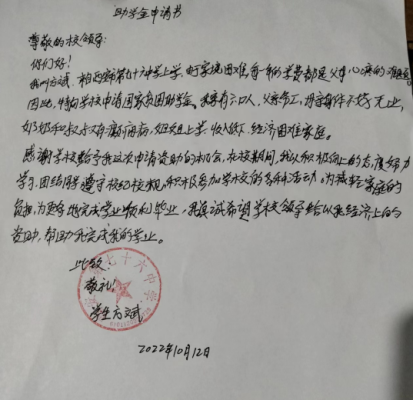 助学金申请书
尊敬的校领导:
你们好!
我叫方斌,在西安市第七十六中学上学,由于家境困难,每年的学费都是父母心病的难题。
因此,特向学校申请国家贫困助学金。我家有六口人,父亲务工,母亲身体不好无业,
奶奶和叔叔又有癫痫病,姐姐上学,收入低,经济困难家庭。
感谢学校给予我这次申请资助的机会,在校期间,我以积极向上的态度努力
学习,团结同学,遵守校纪校规,积极参加学校的各种活动。为减轻家庭的
负担,为更好地完成学业顺利毕业。我真诚希望学校领导给以我经济上的
资助,帮助我完成我的学业。
此致
敬礼!
学生方斌
七十六中学
2022年10月12日